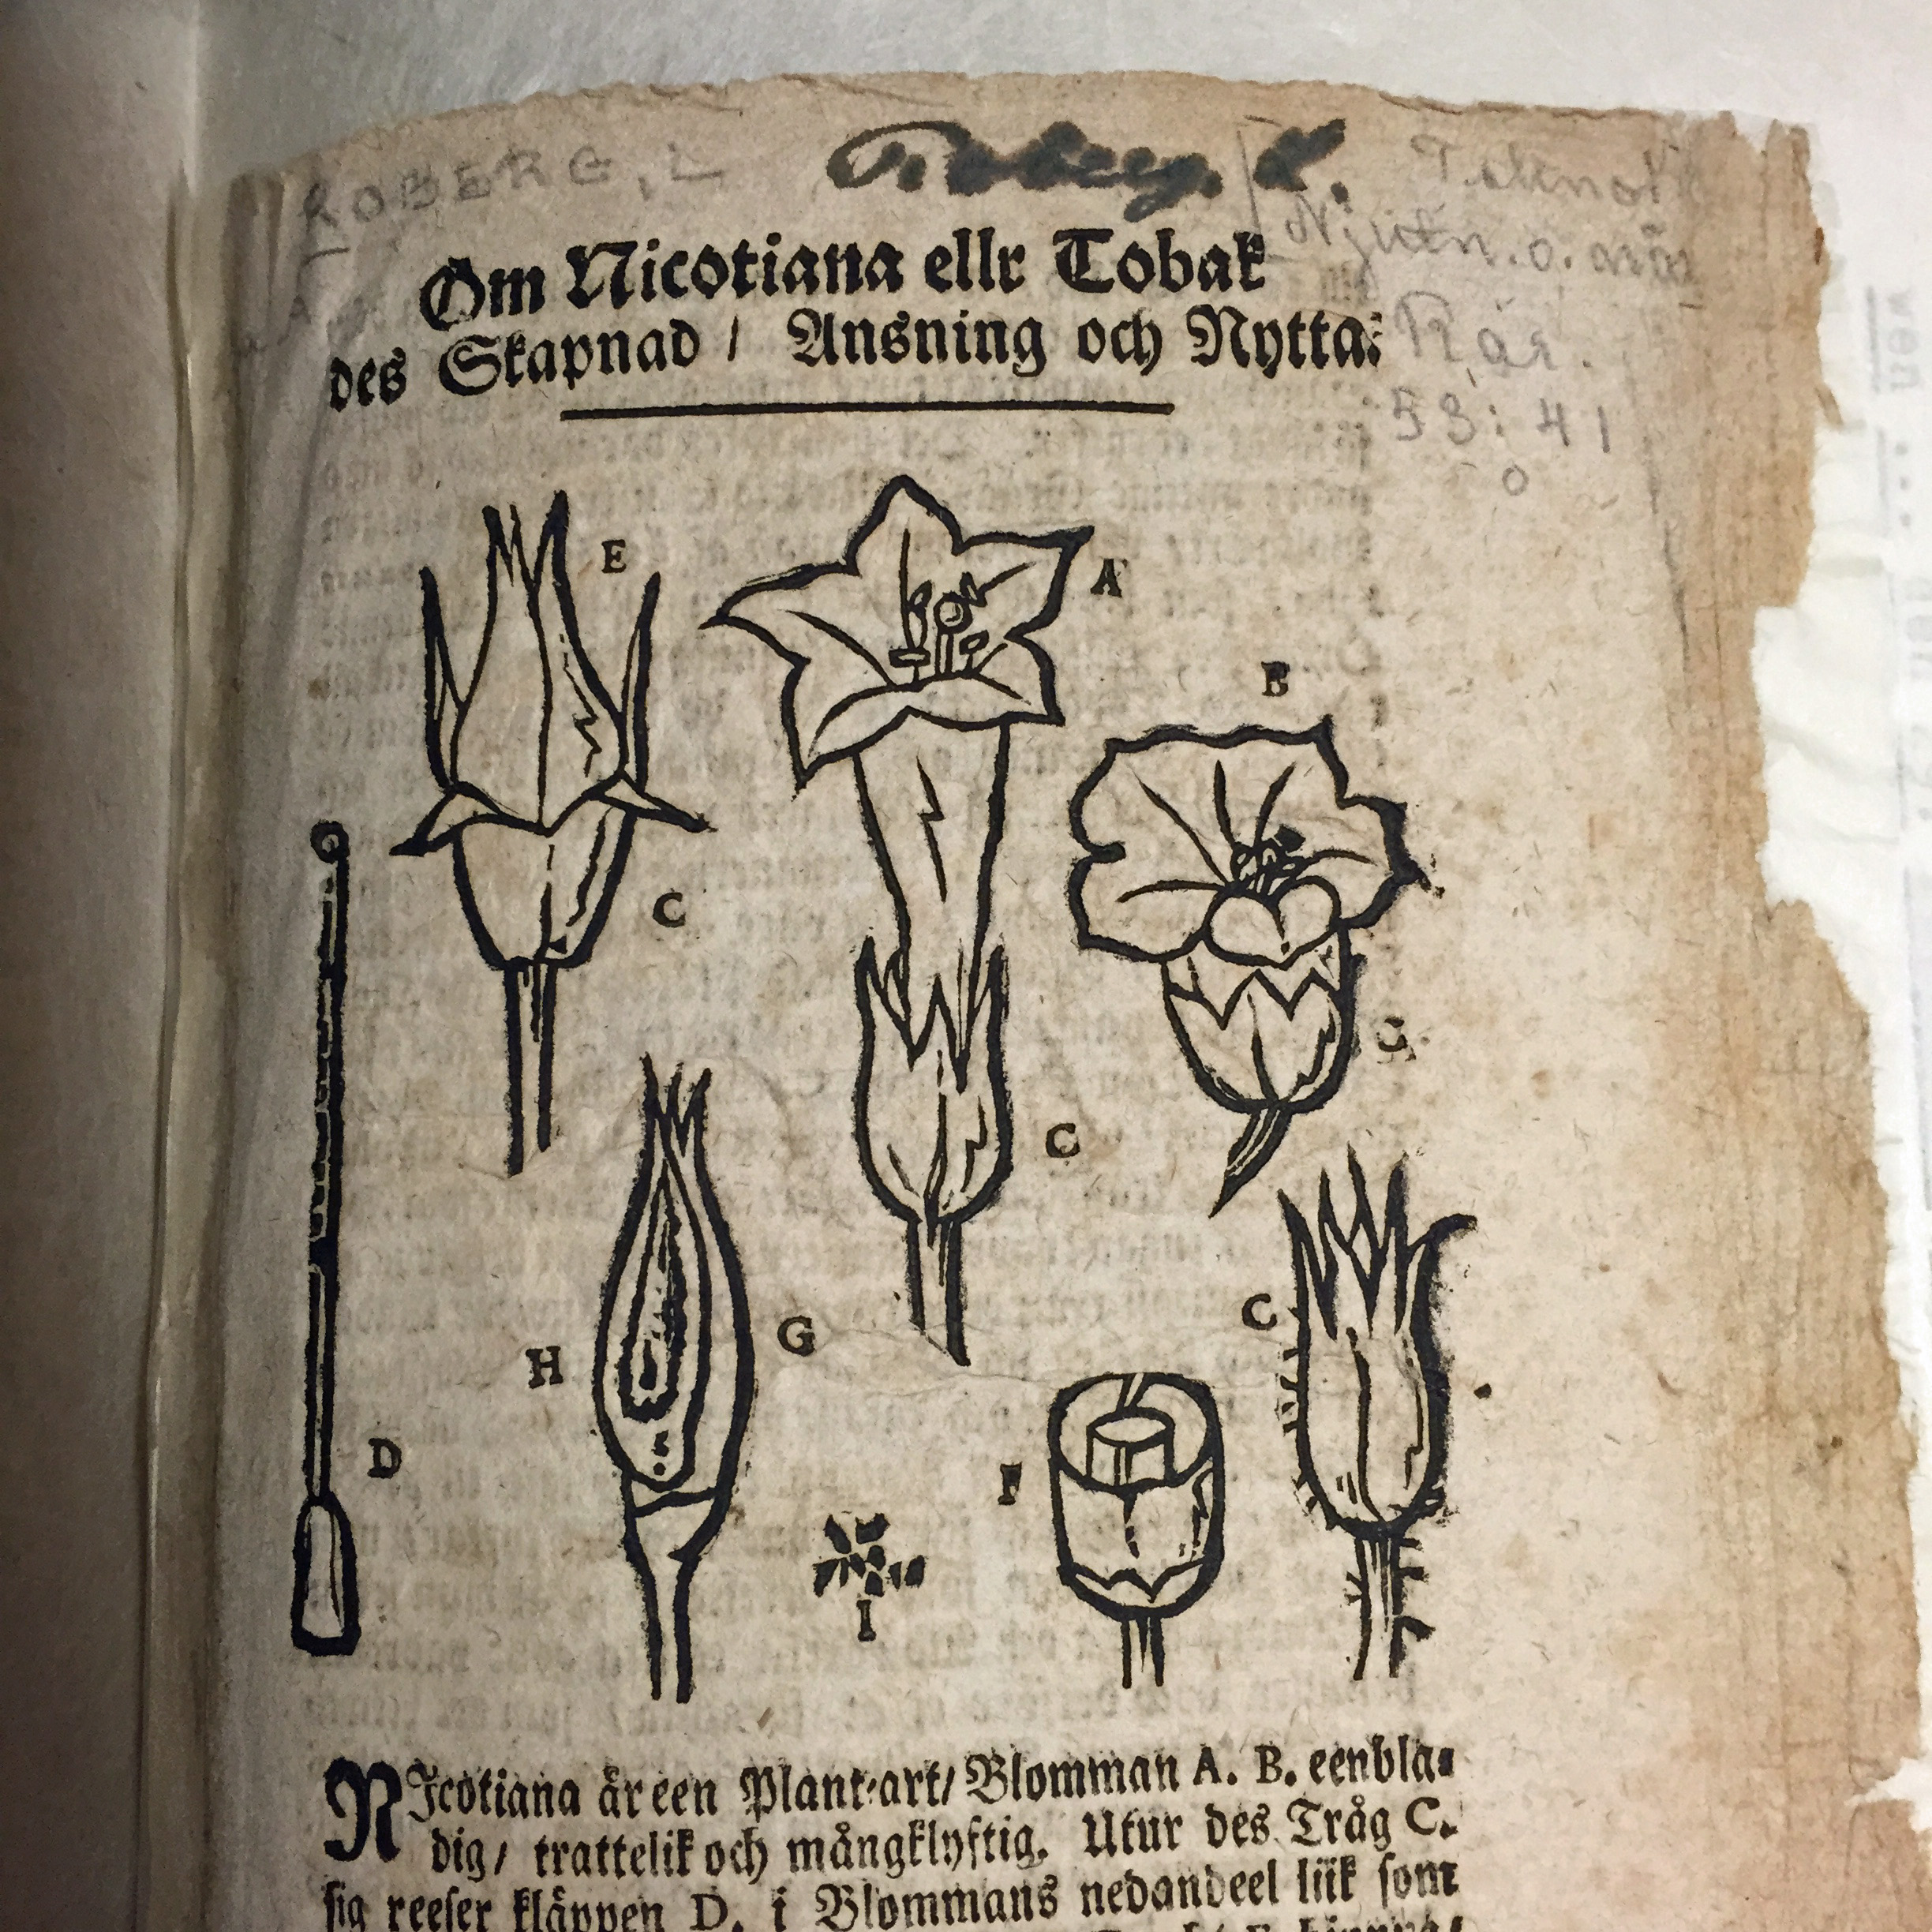 ROBERG, L
Roberg. L.
Om Nicotiana ellr Tobak
des Skapnad / Ansning och Nytta:
Rar.
53: 41
o
E
A
B
C
C
C
C
D
H
G
F
I
NIcotiana är een Plant-art/ Blomman A. B. eenbla-
dig/ trattelik och mångklyftig. Utur des Tråg C.
sig reeser kläppen D. i Blommans nedandeel liik som